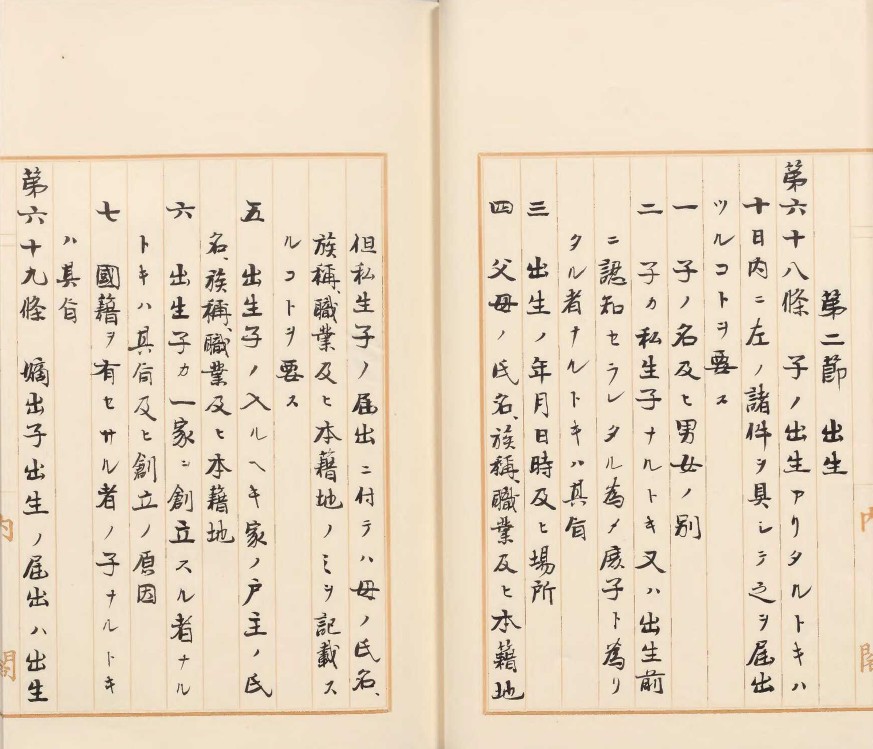 第二節 出生
第六十八條 子ノ出生アリタルトキハ
十日内ニ左ノ諸件ヲ具シテ之ヲ届出
ツルコトヲ要ス
一 子ノ名及ヒ男女ノ別
二 子カ私生子ナルトキ又ハ出生前
ニ認知セラレタル為メ庶子ト為リ
タル者ナルトキハ其旨
三 出生ノ年月日時及ヒ場所
四 父母ノ氏名、族稱、職業及ヒ本籍地
但私生子ノ届出ニ付テハ母ノ氏名、
族稱、職業及ヒ本籍地ノミヲ記載ス
ルコトヲ要ス
五 出生子ノ入ルヘキ家ノ戸主ノ氏
名、族稱、職業及ヒ本籍地
六 出生子カ一家ヲ創立スル者ナル
トキハ其旨及ヒ創立ノ原因
七 國籍ヲ有セサル者ノ子ナルトキ
ハ其旨
第六十九條 嫡出子出生ノ届出ハ出生
内
閣
内
閣